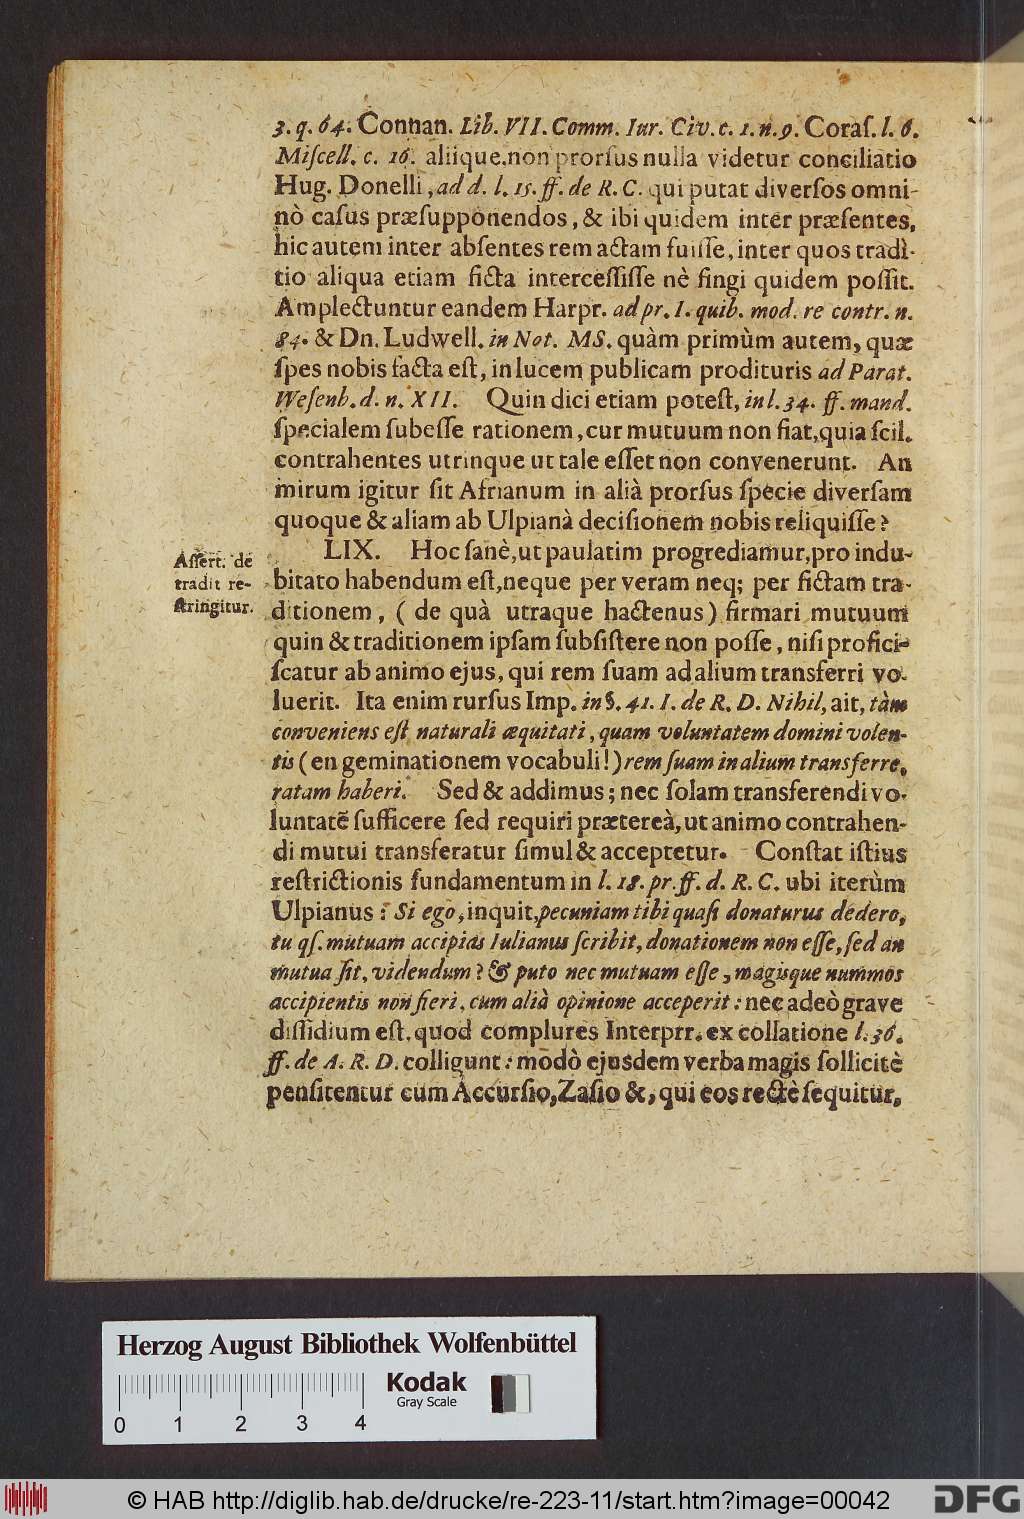 3. q. 64. Connan. Lib. VII. Comm. Iur. Civ. c. 1. n. 9. Coraſ. l. 6.
Miſcell. c. 16. aliique, non prorſus nulla videtur conciliatio
Hug. Donelli, ad d. l. 15. ff. de R. C. qui putat diverſos omni-
nò caſus præſupponendos, & ibi quidem inter præſentes,
hic autem inter abſentes rem actam fuiſſe, inter quos tradi-
tio aliqua etiam ficta interceſſiſſe nè fingi quidem poſſit.
Amplectuntur eandem Harpr. ad pr. I. quib. mod. re contr. n.
84. & Dn. Ludwell. in Not. MS. quàm primùm autem, quæ
ſpes nobis facta eſt, in lucem publicam prodituris ad Parat.
Weſenb. d. n. XII. Quin dici etiam poteſt, in l. 34. ff. mand.
ſpecialem ſubeſſe rationem, cur mutuum non fiat, quia ſcil.
contrahentes utrinque ut tale eſſet non convenerunt. An
mirum igitur ſit Afrianum in aliâ prorſus ſpecie diverſam
quoque & aliam ab Ulpianà deciſionem nobis reliquiſſe?
Aſſert. de
tradit re-
ſtringitur.
LIX. Hoc ſanè, ut paulatim progrediamur, pro indu-
bitato habendum eſt, neque per veram neq; per fictam tra-
ditionem, (de quà utraque hactenus) firmari mutuum
quin & traditionem ipſam ſubſiſtere non poſſe, niſi profici-
ſcatur ab animo ejus, qui rem ſuam ad alium transferri vo-
luerit. Ita enim rurſus Imp. in §. 41. I. de R. D. Nihil, ait, tàm
conveniens eſt naturali æquitati, quam voluntatem domini volen-
tis (en geminationem vocabuli!) rem ſuam in alium transferre,
ratam haberi. Sed & addimus; nec ſolam transferendi vo-
luntatẽ ſufficere ſed requiri prætereà, ut animo contrahen-
di mutui transferatur ſimul & acceptetur. Conſtat iſtius
reſtrictionis fundamentum in l. 18. pr. ff. d. R. C. ubi iterùm
Ulpianus: Si ego, inquit, pecuniam tibi quaſi donaturus dedero,
tu qſ. mutuam accipias Iulianus ſcribit, donationem non eſſe, ſed an
mutua ſit, videndum? & puto nec mutuam eſſe, magisque nummos
accipientis non fieri, cum aliâ opinione acceperit: nec adeò grave
diſſidium eſt, quod complures Interprr. ex collatione l. 36.
ff. de A. R. D. colligunt: modò ejusdem verba magis ſollicitè
penſitentur cum Accurſio, Zaſio &, qui eos rectè ſequitur,
Herzog August Bibliothek Wolfenbüttel
Kodak
Gray Scale
0 1 2 3 4
© HAB http://diglib.hab.de/drucke/re-223-11/start.htm?image=00042
DFG